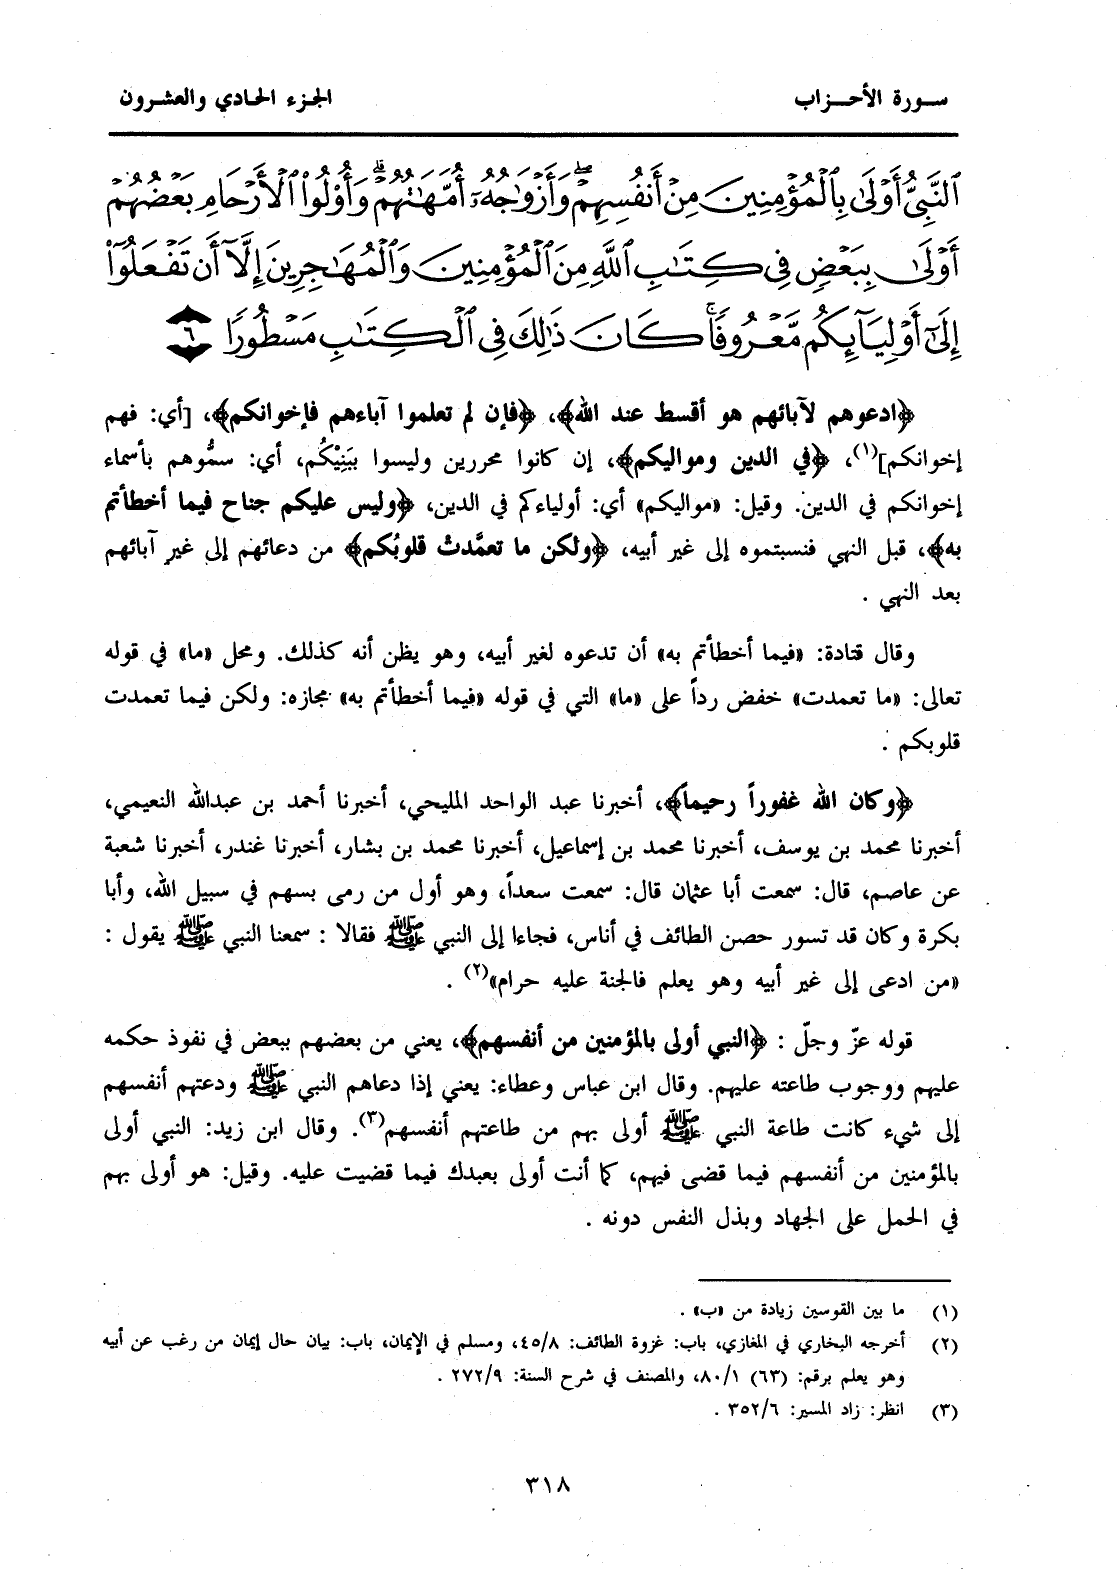 سورة الأحزاب
الجزء الحادي والعشرون
ٱلنَّبِىُّ أَوْلَىٰ بِٱلْمُؤْمِنِينَ مِنْ أَنفُسِهِمْ ۖ وَأَزْوَٰجُهُۥٓ أُمَّهَٰتُهُمْ ۗ وَأُو۟لُوا۟ ٱلْأَرْحَامِ بَعْضُهُمْ
أَوْلَىٰ بِبَعْضٍ فِى كِتَٰبِ ٱللَّهِ مِنَ ٱلْمُؤْمِنِينَ وَٱلْمُهَٰجِرِينَ إِلَّآ أَن تَفْعَلُوٓا۟
إِلَىٰٓ أَوْلِيَآئِكُم مَّعْرُوفًا ۚ كَانَ ذَٰلِكَ فِى ٱلْكِتَٰبِ مَسْطُورًا ٦
﴿ادعوهم لآبائهم هو أقسط عند الله﴾، ﴿فإن لم تعلموا آباءهم فإخوانكم﴾، [أي: فهم
إخوانكم](١)، ﴿في الدين ومواليكم﴾، إن كانوا محررين وليسوا بِبَنِيْكُم، أي: سمُّوهم بأسماء
إخوانكم في الدين. وقيل: «مواليكم» أي: أولياءكم في الدين، ﴿وليس عليكم جناح فيما أخطأتم
به﴾، قبل النهي فنسبتموه إلى غير أبيه، ﴿ولكن ما تعمَّدتْ قلوبُكم﴾ من دعائهم إلى غير آبائهم
بعد النهي .
وقال قتادة: «فيما أخطأتم به» أن تدعوه لغير أبيه، وهو يظن أنه كذلك. ومحل «ما» في قوله
تعالى: «ما تعمدت» خفض رداً على «ما» التي في قوله «فيما أخطأتم به» مجازه: ولكن فيما تعمدت
قلوبكم .
﴿وكان الله غفوراً رحيماً﴾، أخبرنا عبد الواحد المليحي، أخبرنا أحمد بن عبدالله النعيمي،
أخبرنا محمد بن يوسف، أخبرنا محمد بن إسماعيل، أخبرنا محمد بن بشار، أخبرنا غندر، أخبرنا شعبة
عن عاصم، قال: سمعت أبا عثمان قال: سمعت سعداً، وهو أول من رمى بسهم في سبيل الله، وأبا
بكرة وكان قد تسور حصن الطائف في أناس، فجاءا إلى النبي ﷺ فقالا : سمعنا النبي ﷺ يقول :
«من ادعى إلى غير أبيه وهو يعلم فالجنة عليه حرام»(٢) .
قوله عزّ وجلّ : ﴿النبي أولى بالمؤمنين من أنفسهم﴾، يعني من بعضهم ببعض في نفوذ حكمه
عليهم ووجوب طاعته عليهم. وقال ابن عباس وعطاء: يعني إذا دعاهم النبي ﷺ ودعتهم أنفسهم
إلى شيء كانت طاعة النبي ﷺ أولى بهم من طاعتهم أنفسهم(٣). وقال ابن زيد: النبي أولى
بالمؤمنين من أنفسهم فيما قضى فيهم، كما أنت أولى بعبدك فيما قضيت عليه. وقيل: هو أولى بهم
في الحمل على الجهاد وبذل النفس دونه .
(١) ما بين القوسين زيادة من «ب» .
(٢) أخرجه البخاري في المغازي، باب: غزوة الطائف: ٤٥/٨، ومسلم في الإيمان، باب: بيان حال إيمان من رغب عن أبيه
وهو يعلم برقم: (٦٣) ٨٠/١، والمصنف في شرح السنة: ٢٧٢/٩ .
(٣) انظر: زاد المسير: ٣٥٢/٦ .
٣١٨